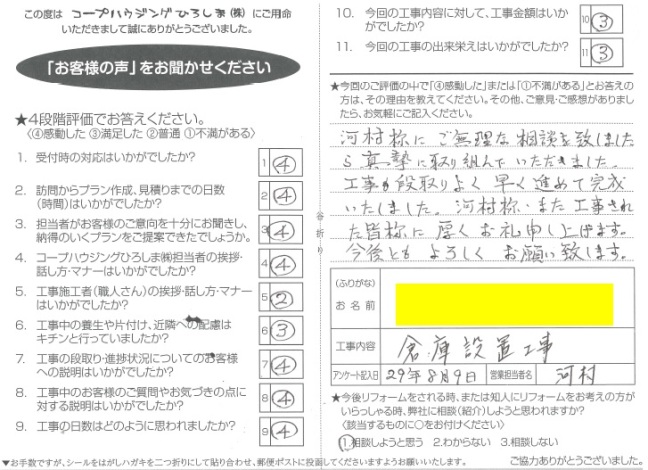 この度は コープハウジングひろしま(株) にご用命
いただきまして誠にありがとうございました。
「お客様の声」をお聞かせください
★4段階評価でお答えください。
〈④感動した ③満足した ②普通 ①不満がある〉
1. 受付時の対応はいかがでしたか?
1 ④
2. 訪問からプラン作成、見積りまでの日数
(時間)はいかがでしたか?
2 ④
3. 担当者がお客様のご意向を十分にお聞きし、
納得のいくプランをご提案できたでしょうか。
3 ④
4. コープハウジングひろしま㈱担当者の挨拶・
話し方・マナーはいかがでしたか?
4 ④
5. 工事施工者(職人さん)の挨拶・話し方・マナー
はいかがでしたか?
5 ②
6. 工事中の養生や片付け、近隣への配慮は
キチンと行っていましたか?
6 ③
7. 工事の段取り・進捗状況についてのお客様
への説明はいかがでしたか?
7 ④
8. 工事中のお客様のご質問やお気づきの点に
対する説明はいかがでしたか?
8 ④
9. 工事の日数はどのように思われましたか?
9 ④
谷折り
10. 今回の工事内容に対して、工事金額はいか
がでしたか?
10 ③
11. 今回の工事の出来栄えはいかがでしたか?
11 ③
★今回のご評価の中で「④感動した」または「①不満がある」とお答えの
方は、その理由を教えてください。その他、ご意見・ご感想がありまし
たら、お気軽にご記入ください。
河村様に ご無理な相談を致しました
ら 真摯に取り組んでいただきました。
工事も段取りよく 早く進めて完成
いたしました。河村様・また工事され
た皆様に 厚く お礼申し上げます。
今後とも よろしく お願い致します。
(ふりがな)
お名前
工事内容
倉庫設置工事
アンケート記入日 29年8月9日 営業担当者名 河村
★今後リフォームをされる時、または知人にリフォームをお考えの方が
いらっしゃる時、弊社に相談(紹介)しようと思われますか?
〈該当するものに○をお付けください〉
①.相談しようと思う 2.わからない 3.相談しない
▼お手数ですが、シールをはがしハガキを二つ折りにして貼り合わせ、郵便ポストに投函してくださいますようお願いいたします。
ご協力ありがとうございました。